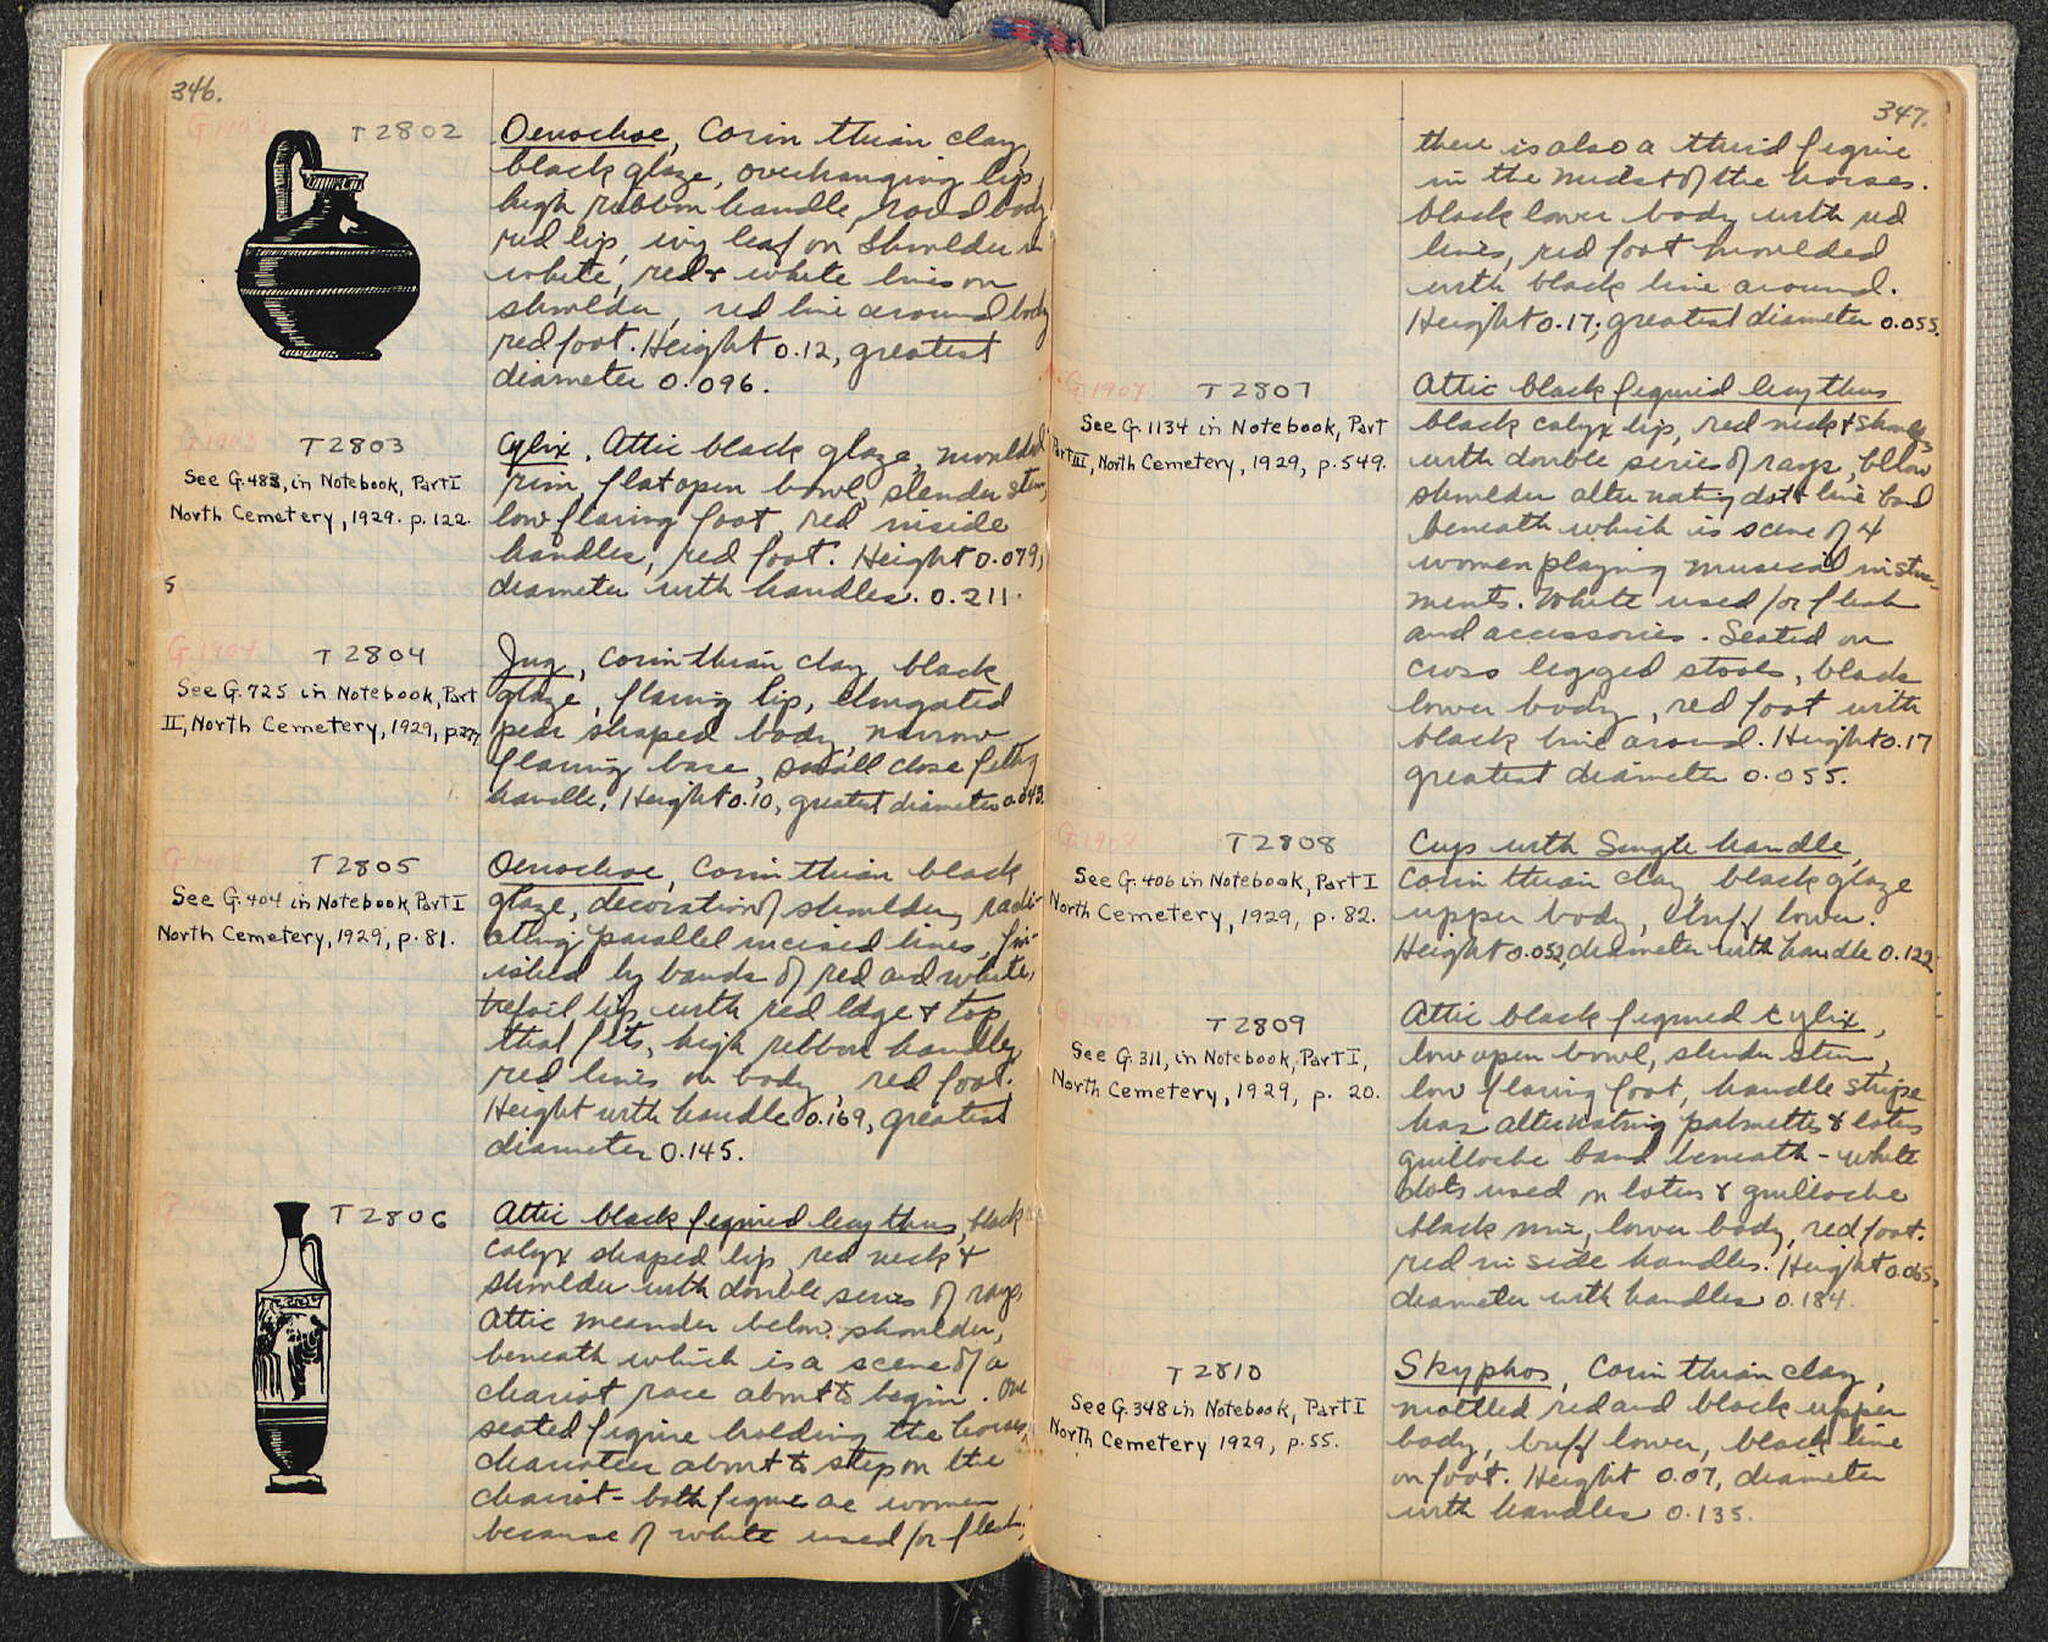 346.
G 1902
T 2802
Oenochoe, Corinthian clay,
black glaze, overhanging lip,
high ribbon handle, round body
red lip, ivy leaf on shoulder in
white, red & white lines on
shoulder, red line around body
red foot. Height 0.12, greatest
diameter 0.096.
G 1903
T 2803
See G. 483, in Notebook, Part I
North Cemetery, 1929. p. 122.
5
Cylix, Attic black glaze, moulded
rim, flat open bowl, slender stem,
low flaring foot, red inside
handles, red foot. Height 0.079,
diameter with handles. 0.211.
G 1904
T 2804
See G. 725 in Notebook, Part
II, North Cemetery, 1929, p.277.
Jug, Corinthian clay black
glaze, flaring lip, elongated
pear shaped body, narrow
flaring base, small close fitting
handle, Height 0.10, greatest diameter 0.043.
T 2805
See G. 404 in Notebook Part I
North Cemetery, 1929, p. 81.
Oenochoe, Corinthian black
glaze, decoration of shoulder, radi-
ating parallel incised lines, fin-
ished by bands of red and white,
trefoil lip with red edge & top
that fits, high ribbon handle,
red lines on body, red foot.
Height with handle 0.169, greatest
diameter 0.145.
T 2806
Attic black figured lecythus, black
calyx shaped lip, red neck &
shoulder with double series of rays,
Attic meander below shoulder,
beneath which is a scene of a
chariot race about to begin. One
seated figure holding the horses,
charioteer about to step on the
chariot - both figure are women
because of white used for flesh;
347.
there is also a third figure
in the midst of the horses.
black lower body with red
lines, red foot moulded
with black line around.
Height 0.17; greatest diameter 0.055.
G 1907
T 2807
See G. 1134 in Notebook, Part
Part III, North Cemetery, 1929, p. 549.
Attic black figured lecythus
black calyx lip, red neck & shoulder
with double series of rays, below
shoulder alternating dot & line band
beneath which is scene of 4
women playing musical instru-
ments. White used for flesh
and accessories. Seated on
cross legged stools, black
lower body, red foot with
black line around. Height 0.17
greatest diameter 0.055.
G 1908
T 2808
See G. 406 in Notebook, Part I
North Cemetery, 1929, p. 82.
Cup with Single handle,
Corinthian clay, black glaze
upper body, buff lower.
Height 0.052, diameter with handle 0.122.
G 1909
T 2809
See G. 311, in Notebook, Part I,
North Cemetery, 1929, p. 20.
Attic black figured cylix,
low open bowl, slender stem,
low flaring foot, handle stripe
has alternating palmettes & lotus
guilloche band beneath - white
dots used in lotus & guilloche
black rim, lower body, red foot.
red inside handles. Height 0.065,
diameter with handles 0.184.
T 2810
See G. 348 in Notebook, Part I
North Cemetery 1929, p. 55.
Skyphos, Corinthian clay,
mottled red and black upper
body, buff lower, black line
on foot. Height 0.07, diameter
with handles 0.135.